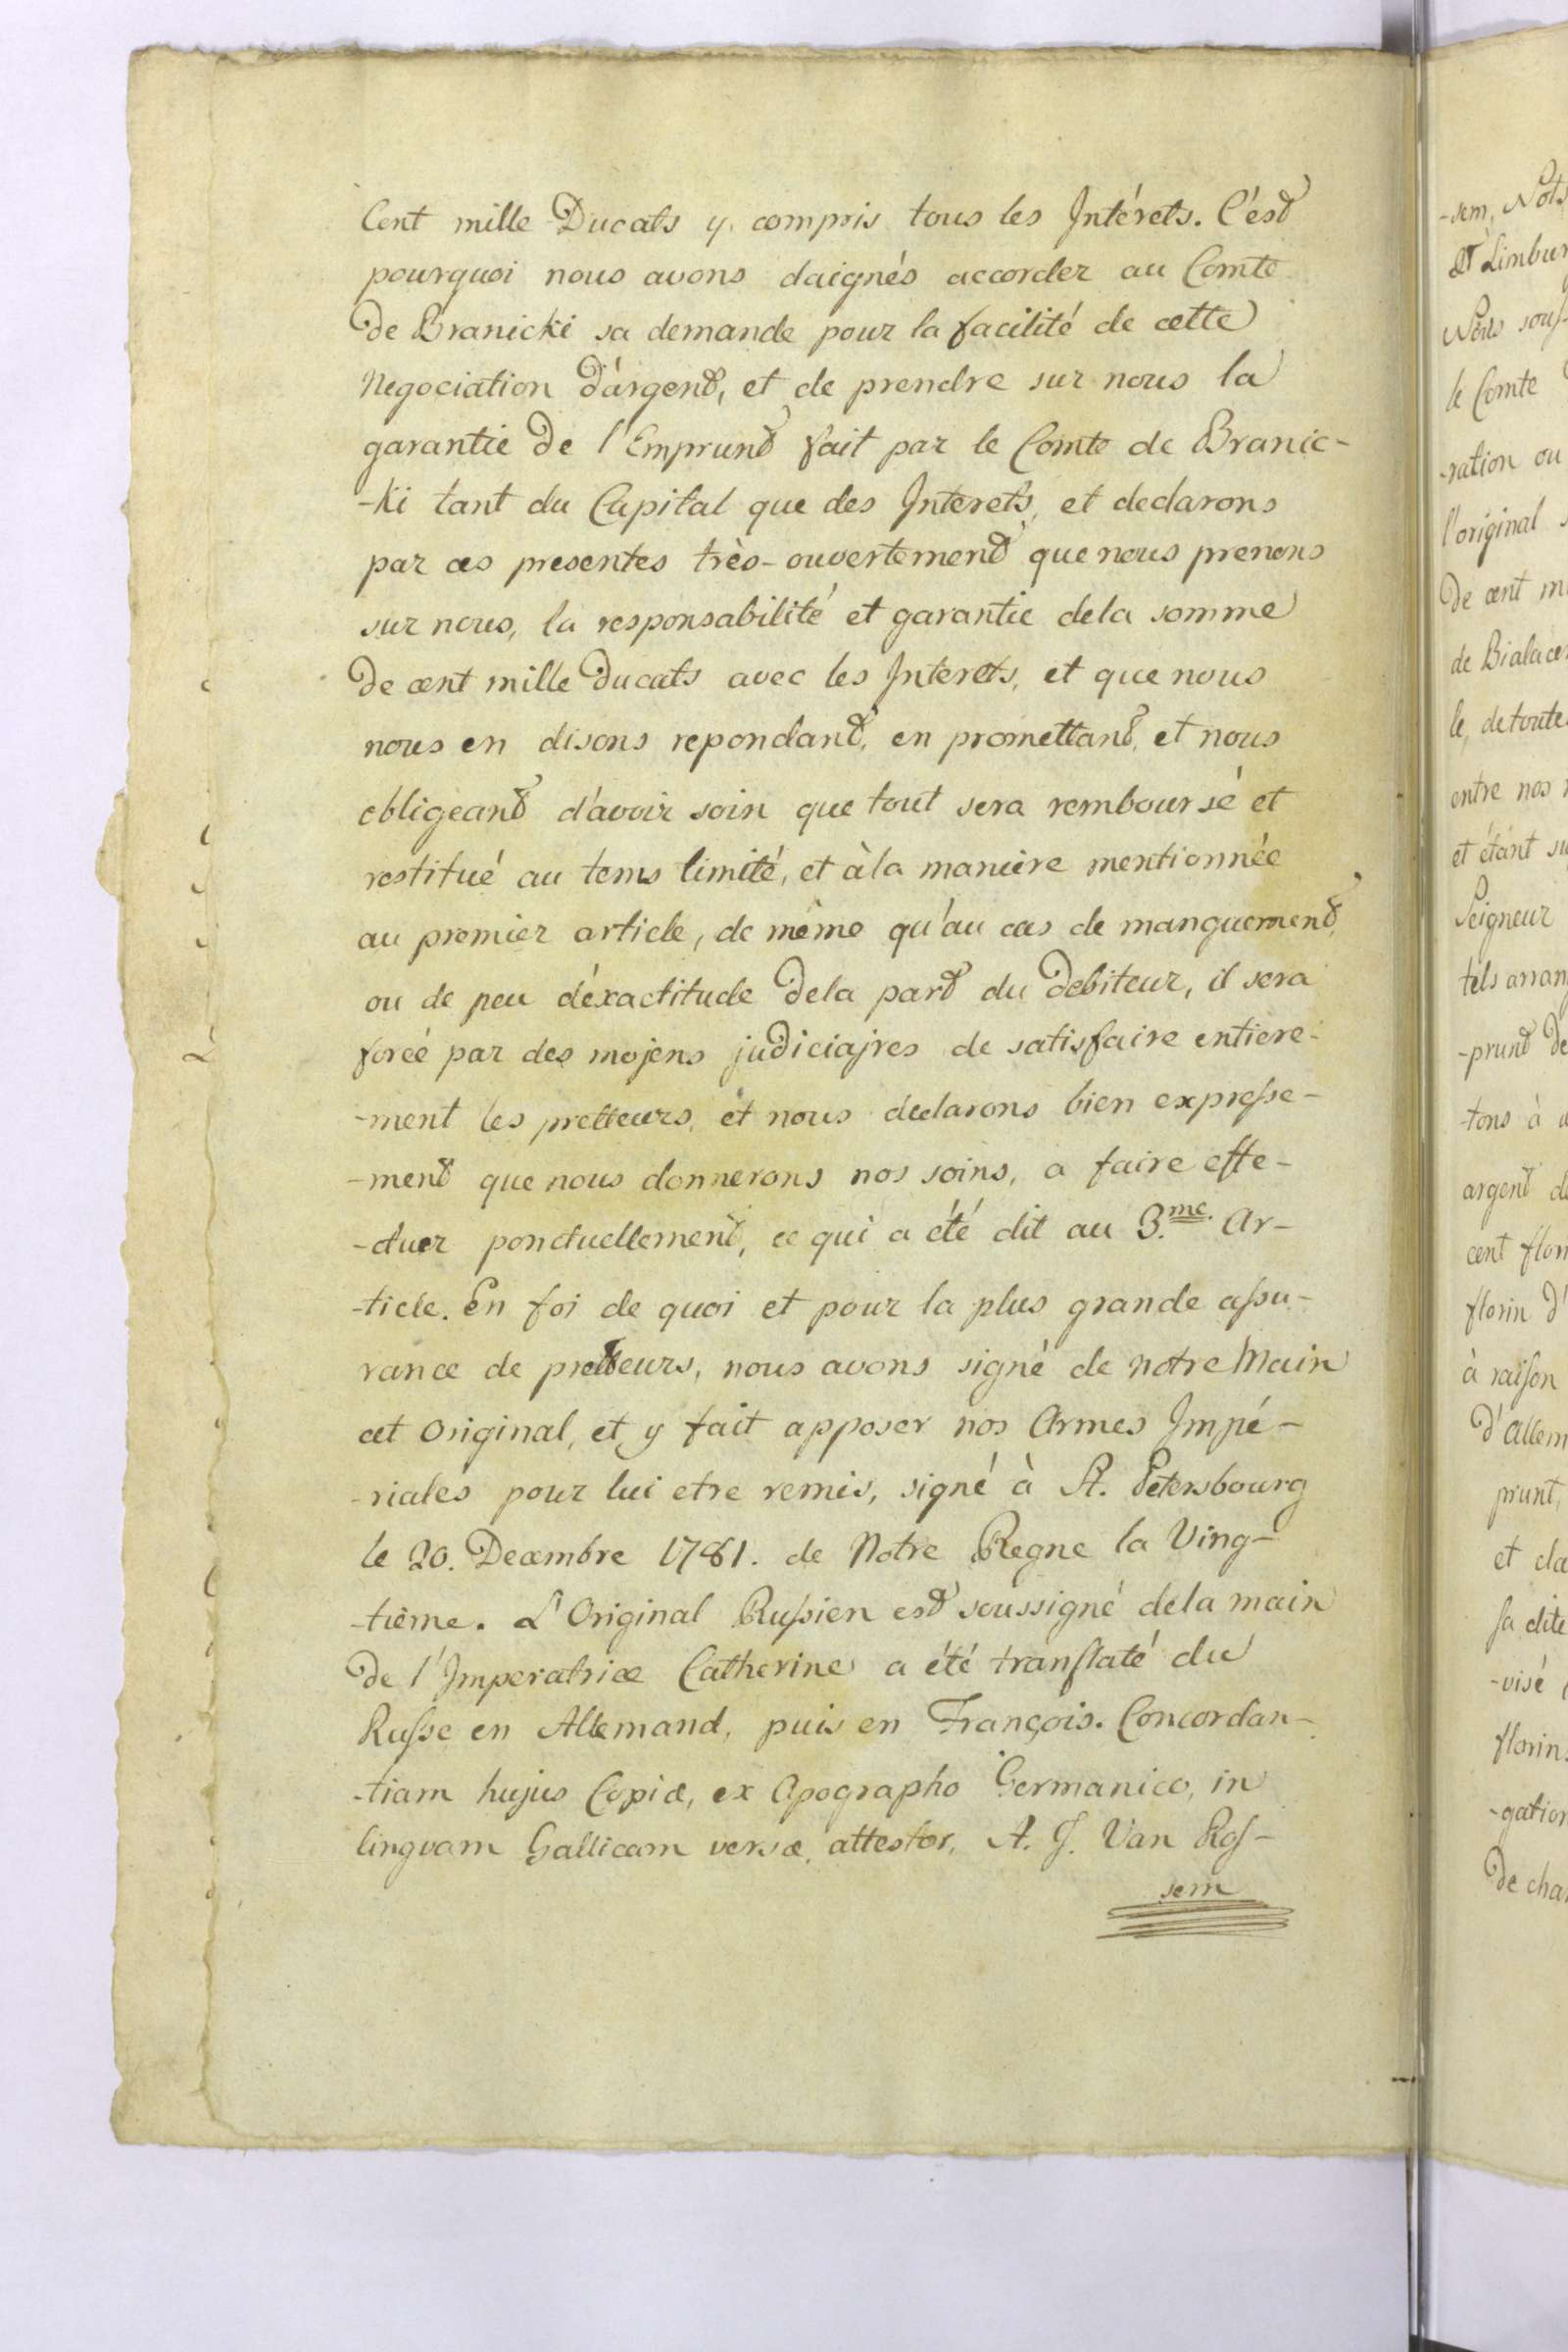 Cent mille Ducats y compris tous les Intérets. C'ést
pourquoi nous avons daignés accorder au Comte
de Branicki sa demande pour la facilité de cette
Negociation d'àrgent, et de prendre sur nous la
garantie de l'Emprunt fait par le Comte de Branic-
-ki tant du Capital que des Interets, et declarons
par ces presentes très-ouvertement que nous prenons
sur nous, la responsabilité et garantie dela somme
de cent mille Ducats avec les Interets, et que nous
nous en disons repondant, en promettant, et nous
obligeant d'avoir soin que tout sera remboursé et
restitué au tems limité, et àla maniere mentionnée
au premier article, de même qu'au cas de manquement,
ou de peu d'éxactitude dela part du Debiteur, il sera
forcé par des mojens judiciajres de satisfaire entiere-
-ment les pretteurs, et nous declarons bien expresse-
-ment que nous donnerons nos soins, a faire effe-
-ctuer ponctuellement, ce qui a été dit au 3.me. Ar-
-ticle. En foi de quoi et pour la plus grande assu-
rance de pretteurs, nous avons signé de notre Main
cet Original, et y fait apposer nos Armes Impé-
-riales pour lui etre remis, signé à St. Petersbourg
le 20. Decembre 1781. de Notre Regne la Ving-
-tième. L'Original Russien est soussigné dela main
de l'Imperatrice Catherine a été translaté du
Russe en Allemand, puis en François. Concordan-
-tiam hujus Copiæ, ex Apographo Germanico, in
linguam Gallicam versæ, attestor, A. J. Van Ros-
sem
-sem, Nots
et Limbur
le Comte
-ration ou
l'original
de cent m
de Bialace
le, de toute
entre nos
et étant su
Seigneur
tels arran
-prunt de
-tons à
argent d
cent flor
florin d'
à raison
d'Allem
prunt,
et cla
sa dite
-visé
florin
-gation
de cha